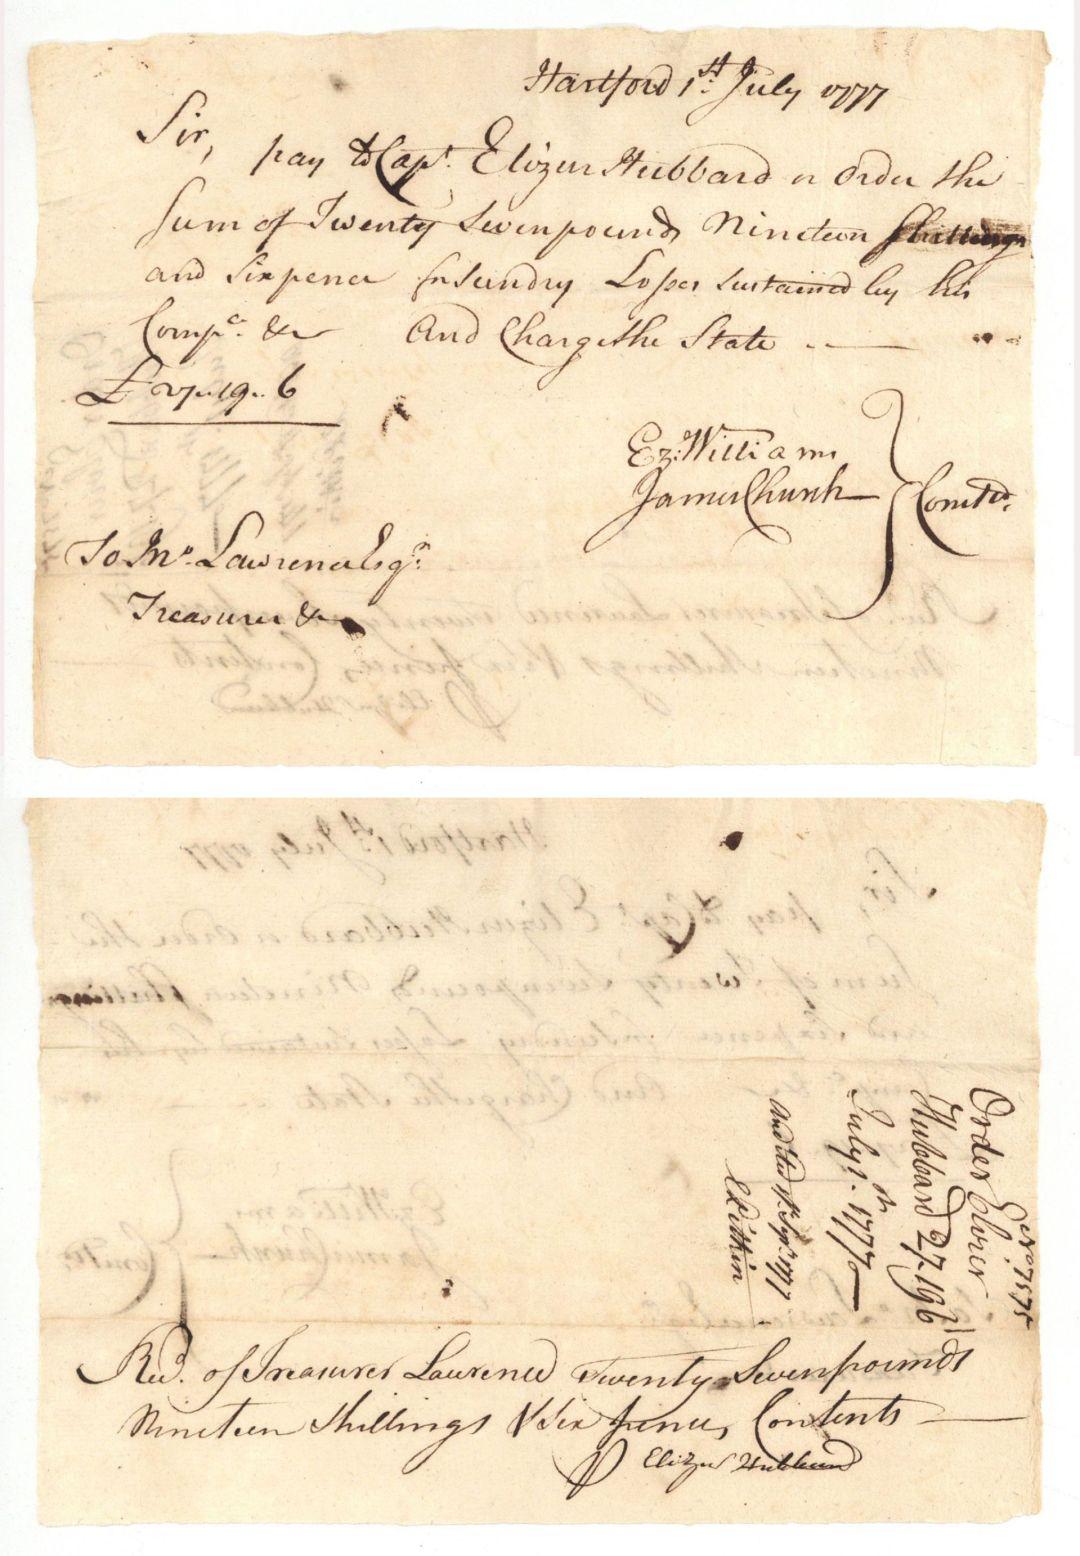 Hartford 1st. July 1777
Sir,
pay to Capt. Elizur Hubbard or Order the
Sum of Twenty Seven pounds Nineteen Shillings
and Sixpence for Sundry Losses sustained by his
Compa. &c And Charge the State
£27..19..6
Ez: Williams
James Church
Comtee.
To Jno. Lawrence Esqr.
Treasurer &c
No. 7575
Order
Hubbard 27.19.6
July 1. 1777
Audited 1777
Recd. of Treasurer Lawrence Twenty Seven pounds
Nineteen Shillings & Six pence, Contents
P Elizur Hubbard